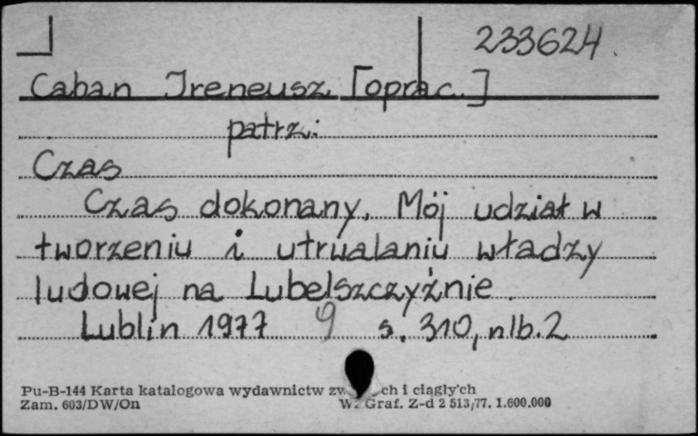 233624.
Caban Ireneusz [oprac.]
patrz:
Czas
Czas dokonany. Mój udział w
tworzeniu i utrwalaniu władzy
ludowej na Lubelszczyźnie.
Lublin 1977 9 s. 310, nlb. 2
Pu-B-144 Karta katalogowa wydawnictw ch i ciągłych
Zam. 603/DW/On W. Graf. Z-d 2 513/77. 1.600.000